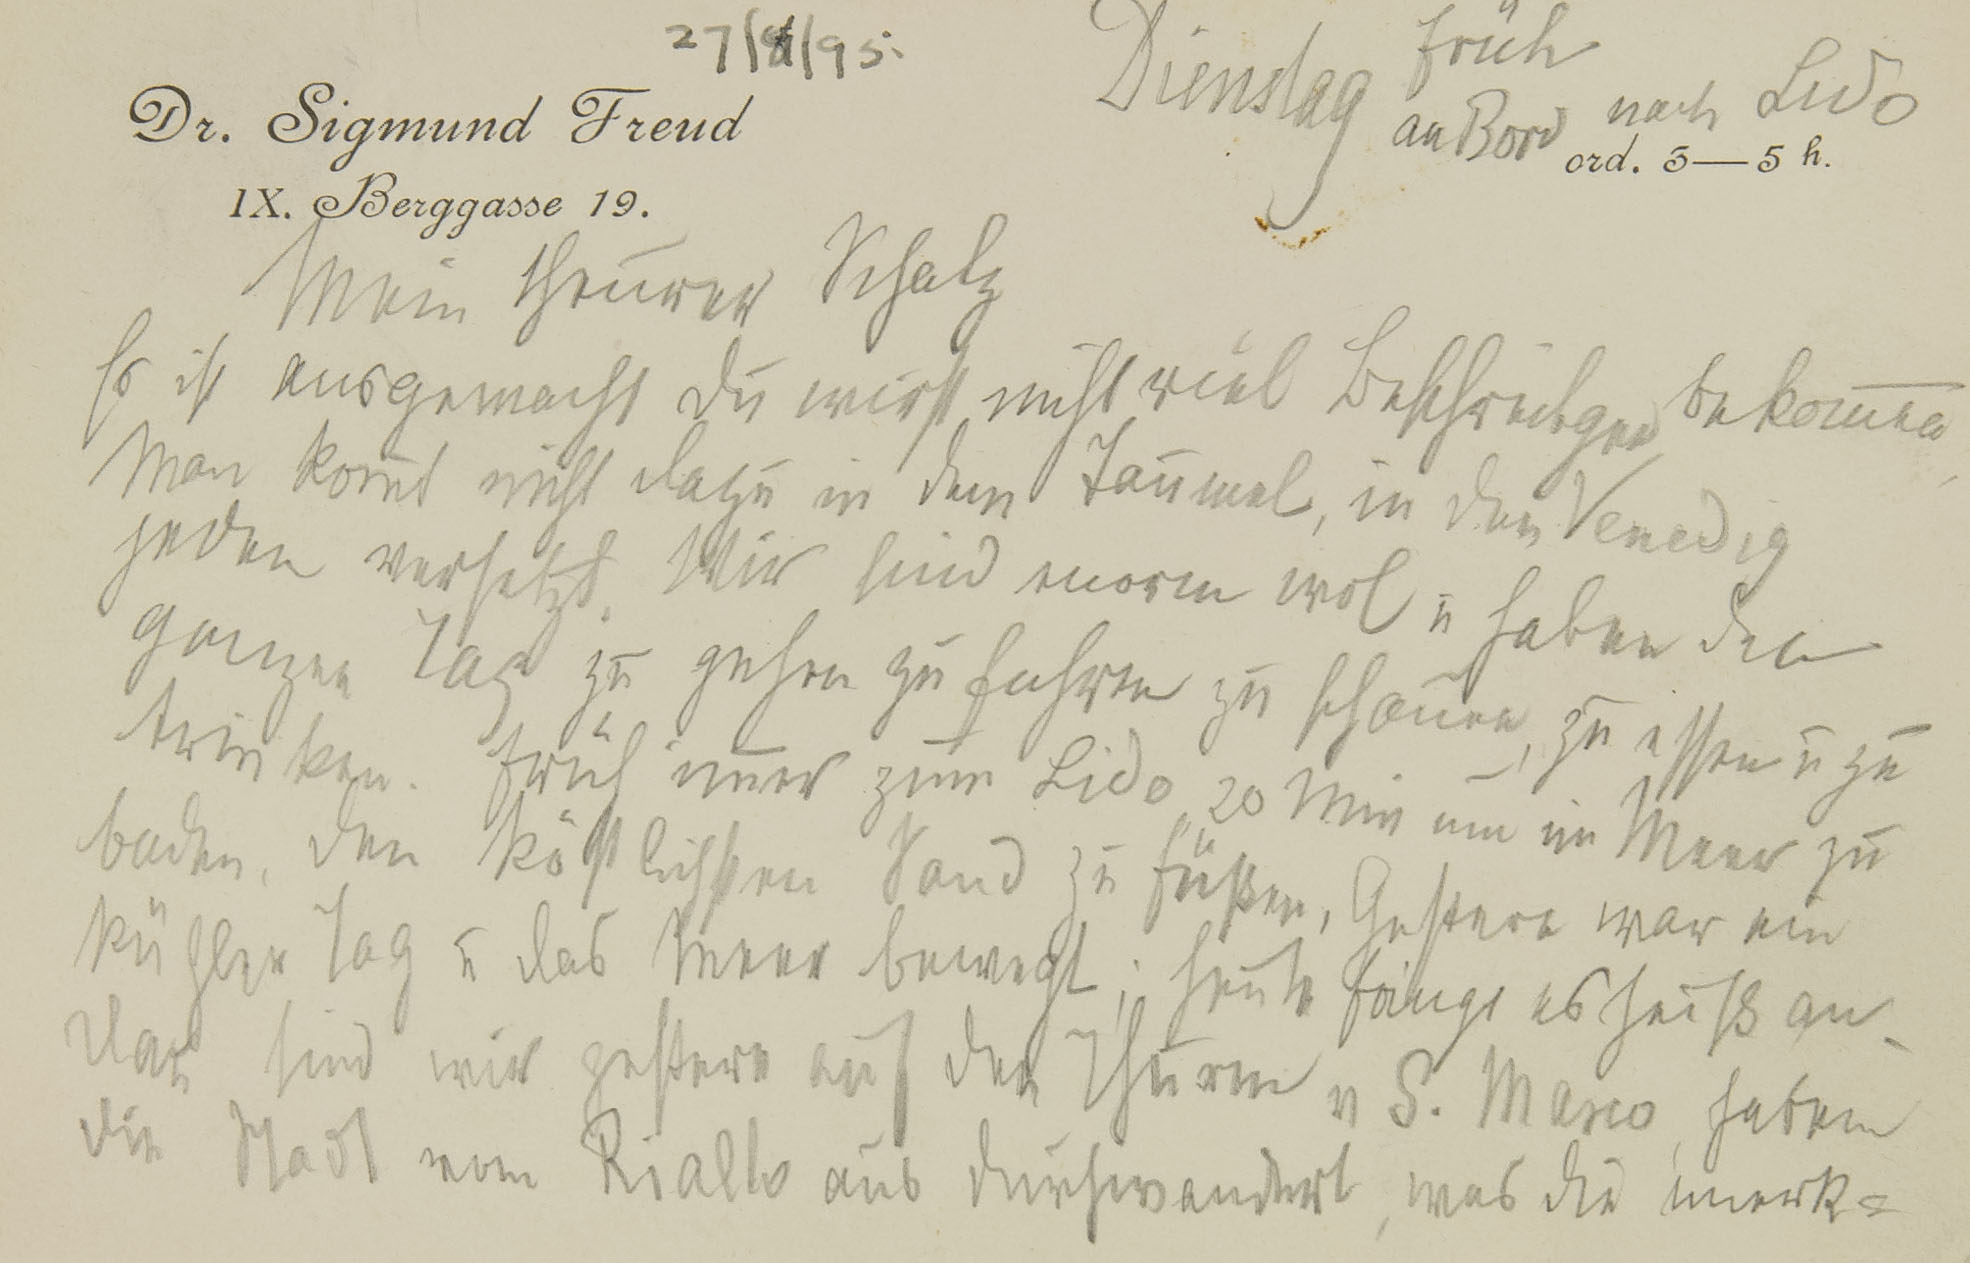 27/8/95.
Dienstag früh
an Bord nach Lido
Dr. Sigmund Freud
IX. Berggasse 19.
ord. 3—5 h.
Mein theurer Schatz
Es ist ausgemacht du wirst nicht viel Beschreibgen bekom̅en,
Man kom̅t nicht dazu in dem Taumel, in den Venedig
jeden versetzt. Wir sind enorm wol u haben den
ganzen Tag zu gehen zu fahren zu schauen, zu essen u zu
trinken. Früh im̅er zum Lido, 20 Min um im Meer zu
baden, den köstlichsten Sand zu Füßen, Gestern war ein
kühler Tag u das Meer bewegt; heute fängt es heiß an.
Dan̅ sind wir gestern auf den Thurm v S. Marco, haben
die Stadt vom Rialto aus durchwandert, was die merk=